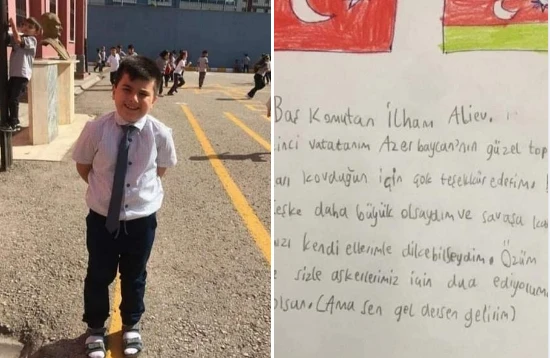 Baş Komutan İlham Aliev.
inci vatatanım Azerbaycan'nın güzel top
arı kovduğun için çok teşekkür ederim !
eşke daha büyük olsaydım ve savaşa ka
ızı kendi ellerimle dikebilseydim. Özüm
e sizle askerlerimiz için dua ediyorum
olsun. (Ama sen gel dersen gelirim)